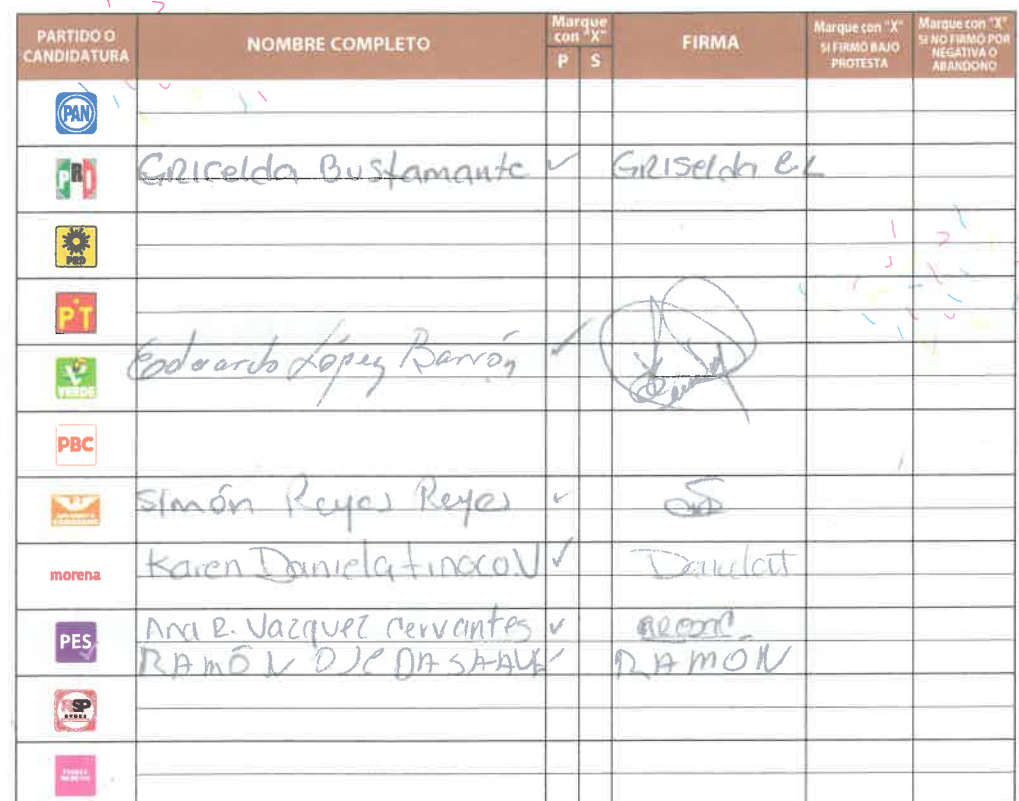 PARTIDO O CANDIDATURA NOMBRE COMPLETO Marque con "X" P S FIRMA Marque con "X" SI FIRMÓ BAJO PROTESTA Marque con "X" SI NO FIRMÓ POR NEGATIVA O ABANDONO
PAN
PRI GRICelda Bustamante ✓ GRISelda B.L
PRD
PT
VERDE Edduardo López Barrón ✓
PBC
Simón Reyes Reyes ✓
morena Karen Daniela tinoco V ✓
PES Ana R. Vazquez Cervantes ✓
RAMÓN ✓ RAMÓN
RSP